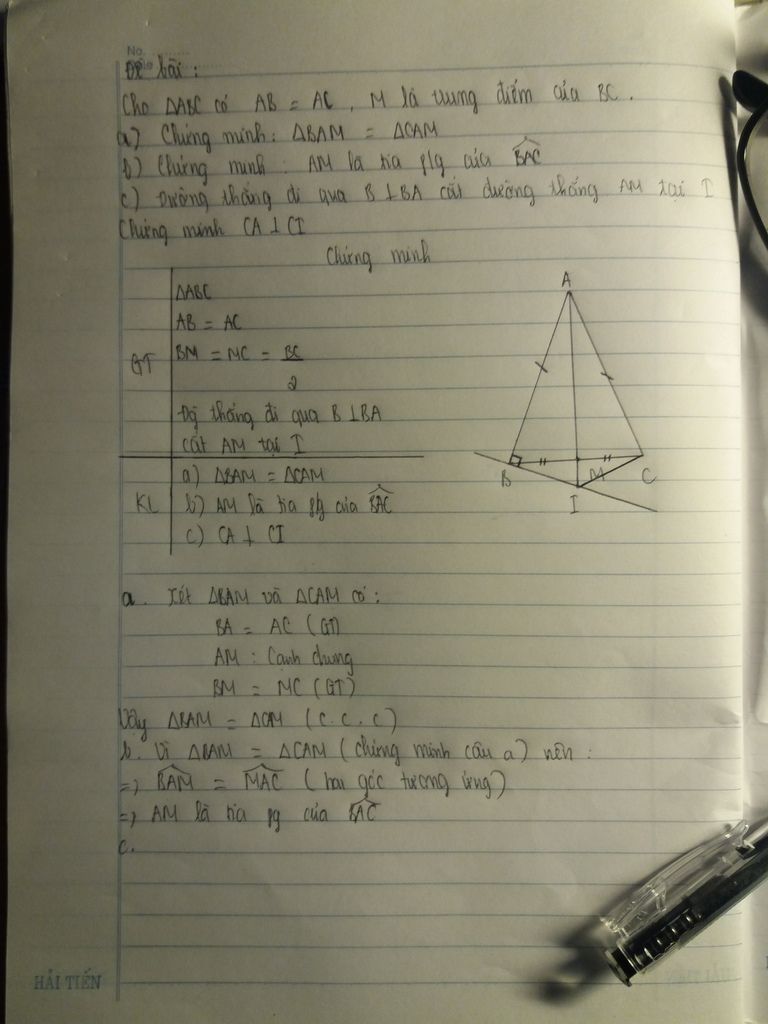 No.
Đề bài :
Cho ΔABC có AB = AC , M là trung điểm của BC .
a) Chứng minh : ΔBAM = ΔCAM
b) Chứng minh : AM là tia p/g của BAC
c) Đường thẳng đi qua B ⊥ BA cắt đường thẳng AM tại I
Chứng minh CA ⊥ CI
Chứng minh
GT
ΔABC
AB = AC
BM = MC = BC/2
Đg thẳng đi qua B ⊥ BA
cắt AM tại I
KL
a) ΔBAM = ΔCAM
b) AM là tia p/g của BAC
c) CA ⊥ CI
A
B
M
C
I
a. Xét ΔBAM và ΔCAM có :
BA = AC (GT)
AM : Cạnh chung
BM = MC (GT)
Vậy ΔBAM = ΔCAM (C.C.C)
b. Vì ΔBAM = ΔCAM (chứng minh câu a) nên :
=> BAM = MAC (hai góc tương ứng)
=> AM là tia pg của BAC
c.
HẢI TIẾN